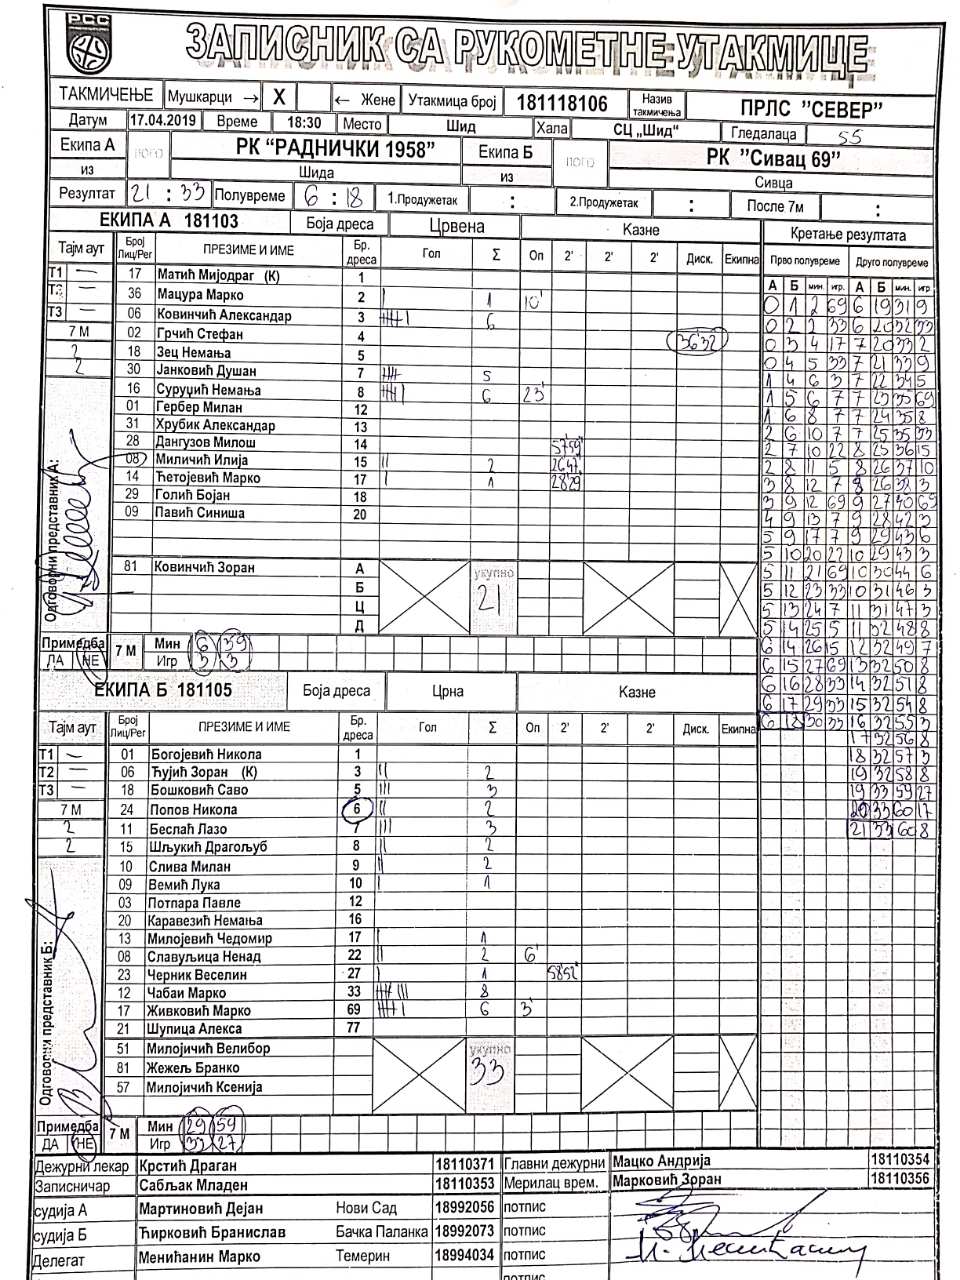 РСС
ЗАПИСНИК СА РУКОМЕТНЕ УТАКМИЦЕ
ТАКМИЧЕЊЕ Мушкарци → X ← Жене Утакмица број 181118106 Назив такмичења ПРЛС ”СЕВЕР”
Датум 17.04.2019 Време 18:30 Место Шид Хала СЦ „Шид“ Гледалаца 55
Екипа А лого РК “РАДНИЧКИ 1958” Екипа Б лого РК ”Сивац 69”
из Шида из Сивца
Резултат 21 : 33 Полувреме 6 : 18 1.Продужетак : 2.Продужетак : После 7м :
ЕКИПА А 181103 Боја дреса Црвена Казне Кретање резултата
Тајм аут Број Лиц/Рег ПРЕЗИМЕ И ИМЕ Бр. дреса Гол Σ Оп 2' 2' 2' Диск. Екипна Прво полувреме Друго полувреме
А Б мин. игр. А Б мин. игр
T1 — 17 Матић Мијодраг (К) 1
36 Мацура Марко 2 | 1 10'
T3 — 06 Ковинчић Александар 3 6
7 М 02 Грчић Стефан 4 36'32
2 18 Зец Немања 5
2 30 Јанковић Душан 7 5
16 Суруџић Немања 8 6 23'
01 Гербер Милан 12
31 Хрубик Александар 13
28 Дангузов Милош 14 57'59
08 Миличић Илија 15 || 2 26'47
14 Ћетојевић Марко 17 | 1 28'29
29 Голић Бојан 18
09 Павић Синиша 20
81 Ковинчић Зоран А
Б
Ц
Д
укупно 21
Одговорни представник А:
Примедба ДА НЕ 7 М Мин 6 39
Игр 3 3
0 1 2 69 6 19 31 9
0 2 2 33 6 20 32 33
0 3 4 17 7 20 33 2
0 4 5 33 7 21 33 9
1 4 6 3 7 22 34 5
1 5 6 7 7 23 35 69
1 6 8 7 7 24 35 8
2 6 10 7 7 25 35 33
2 7 10 22 8 25 36 15
2 8 11 5 8 26 37 10
3 8 12 7 8 26 32 3
3 9 12 69 9 27 40 69
4 9 13 7 9 28 42 3
5 9 17 7 9 29 43 6
5 10 20 22 10 29 43 3
5 11 21 69 10 30 44 6
5 12 23 33 10 31 46 3
5 13 24 7 11 31 47 3
5 14 25 5 11 32 48 8
6 14 26 15 12 32 49 7
6 15 27 69 13 32 50 8
6 16 28 33 14 32 51 8
6 17 29 33 15 32 54 8
6 18 30 33 16 32 55 3
17 32 56 8
18 32 57 3
19 32 58 8
19 33 59 27
20 33 60 17
21 33 60 8
ЕКИПА Б 181105 Боја дреса Црна Казне
Тајм аут Број Лиц/Рег ПРЕЗИМЕ И ИМЕ Бр. дреса Гол Σ Оп 2' 2' 2' Диск. Екипна
T1 — 01 Богојевић Никола 1
T2 — 06 Ћујић Зоран (К) 3 || 2
T3 — 18 Бошковић Саво 5 ||| 3
7 М 24 Попов Никола 6 || 2
2 11 Беслаћ Лазо 7 ||| 3
2 15 Шљукић Драгољуб 8 || 2
10 Слива Милан 9 || 2
09 Вемић Лука 10 | 1
03 Потпара Павле 12
20 Каравезић Немања 16
13 Милојевић Чедомир 17 | 1
08 Славуљица Ненад 22 || 2 6'
23 Черник Веселин 27 | 1 58'52
12 Чабаи Марко 33 8
17 Живковић Марко 69 6 3'
21 Шупица Алекса 77
51 Милојичић Велибор
81 Жежељ Бранко
57 Милојичић Ксенија
укупно 33
Одговорни представник Б:
Примедба ДА НЕ 7 М Мин 29 59
Игр 33 27
Дежурни лекар Крстић Драган 18110371 Главни дежурни Мацко Андрија 18110354
Записничар Сабљак Младен 18110353 Мерилац врем. Марковић Зоран 18110356
судија А Мартиновић Дејан Нови Сад 18992056 потпис
судија Б Ћирковић Бранислав Бачка Паланка 18992073 потпис
Делегат Менићанин Марко Темерин 18994034 потпис
потпис